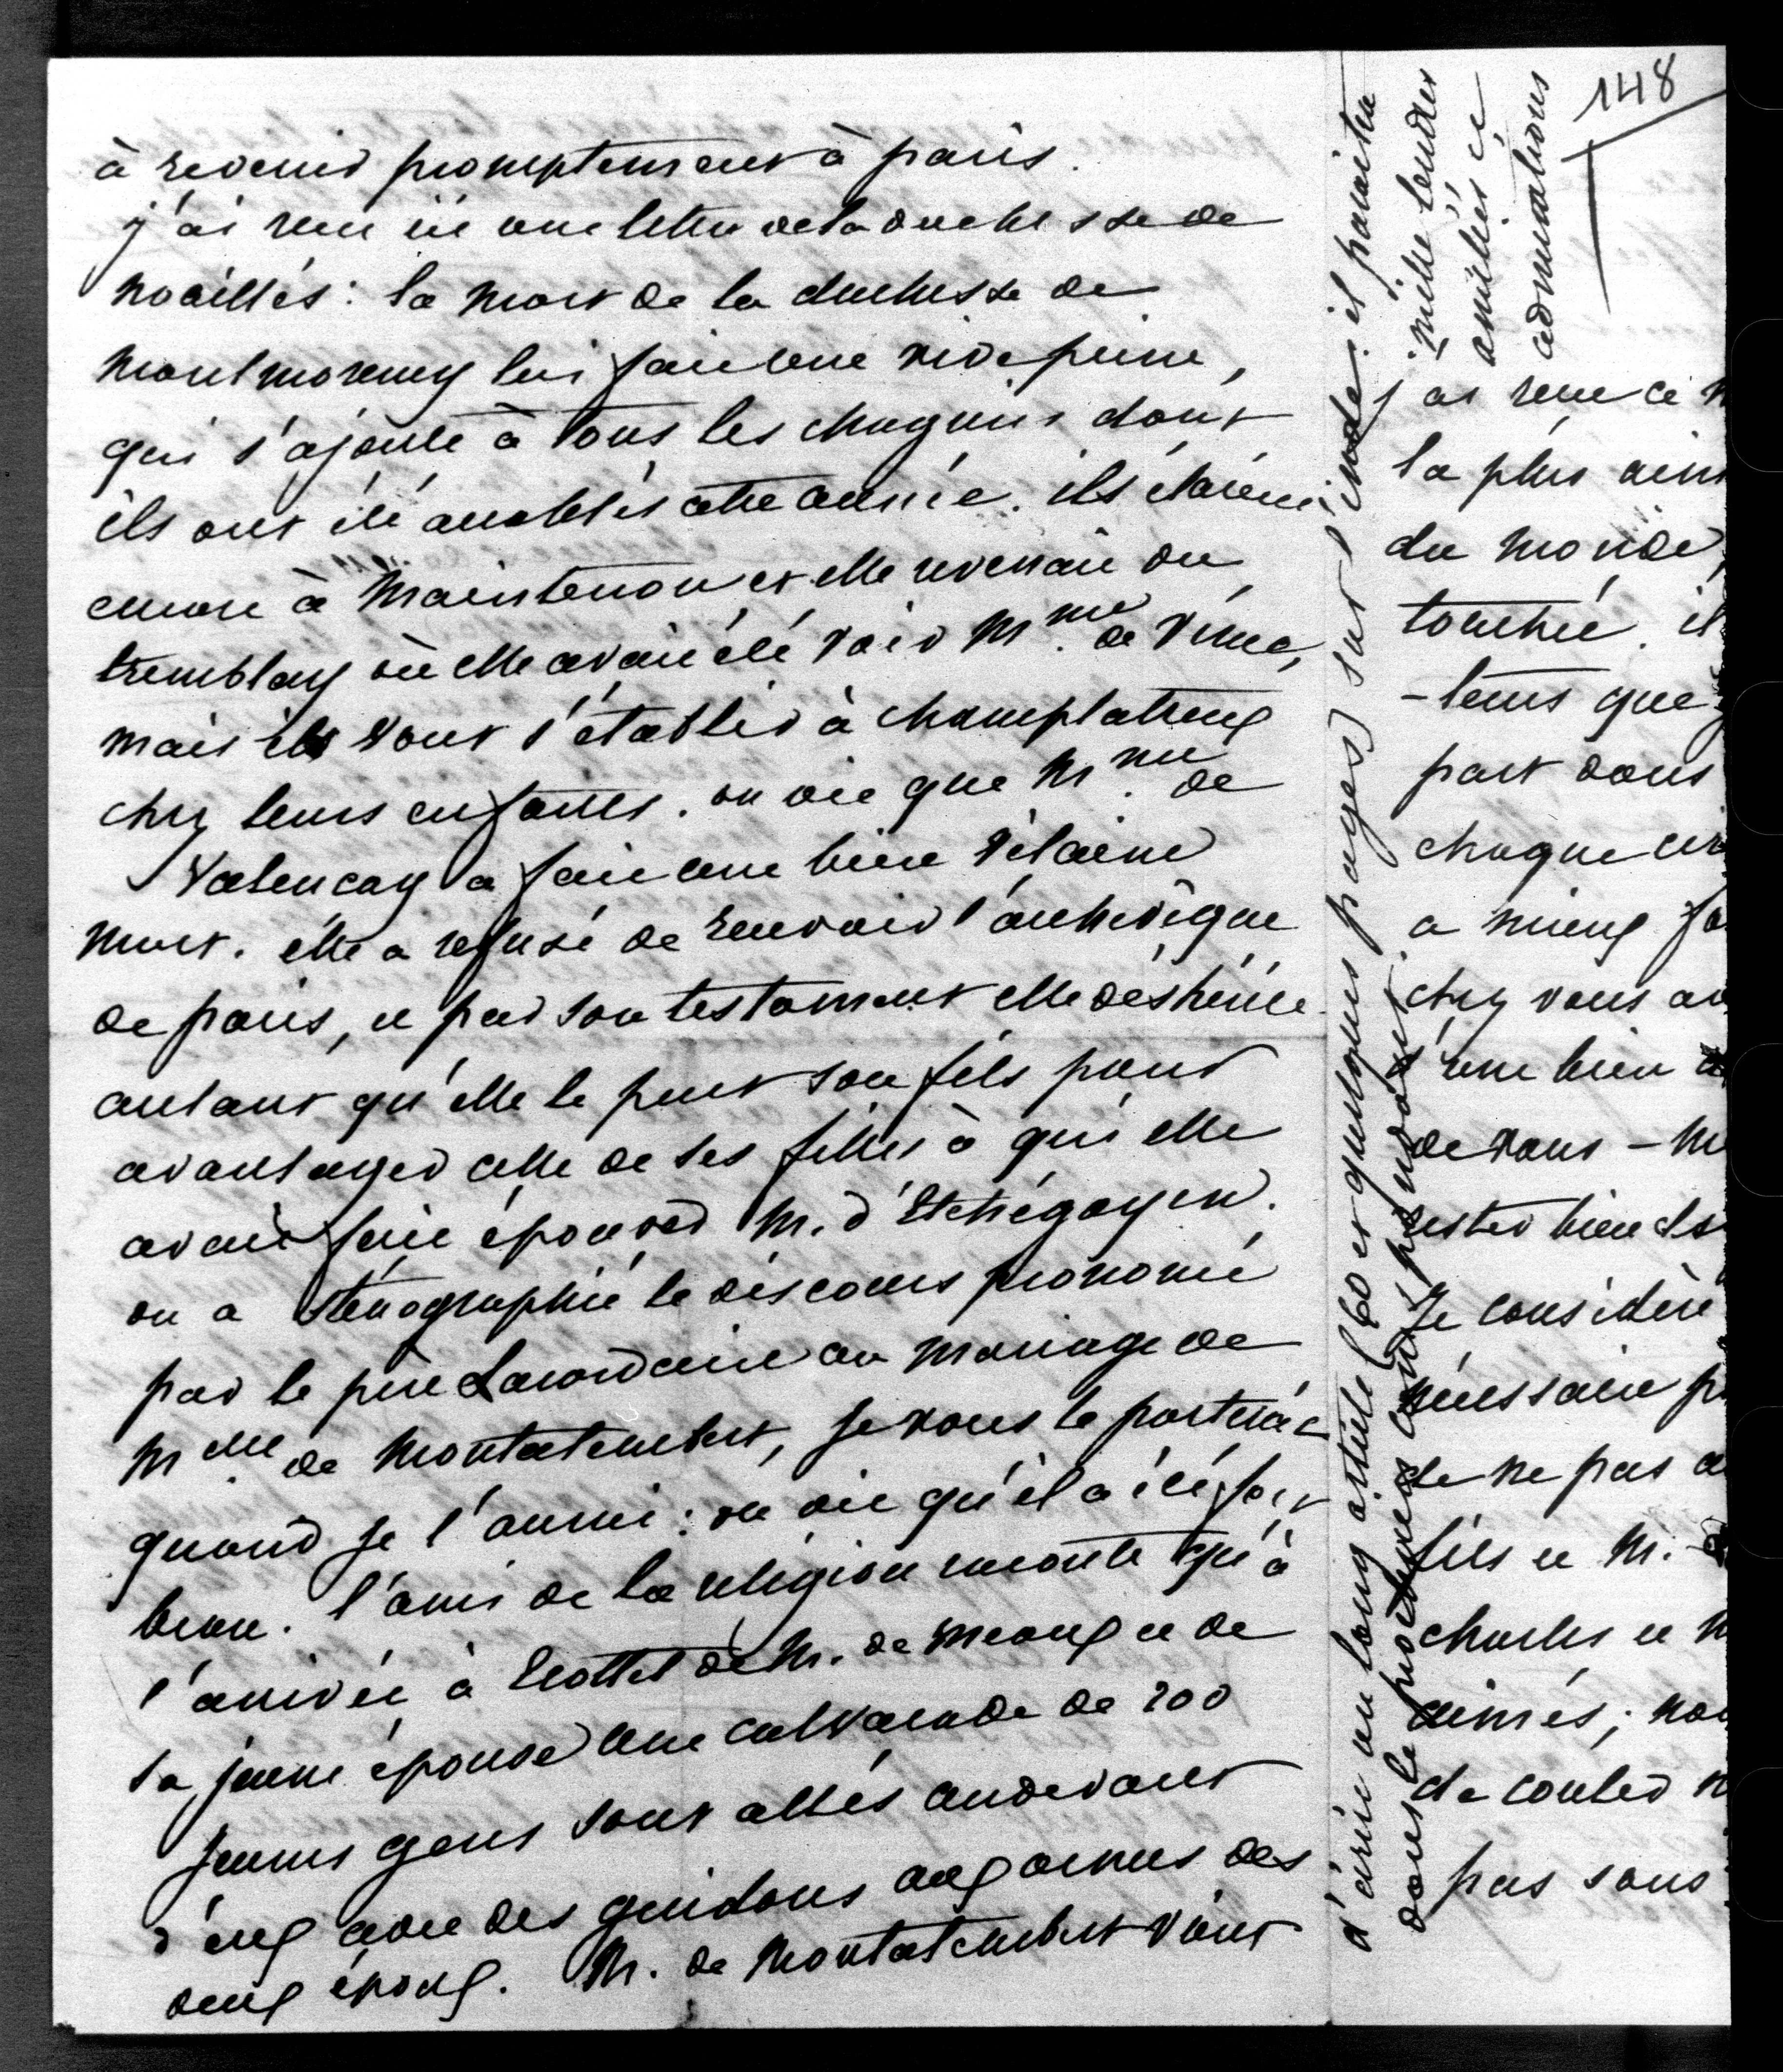 148
à revenir promptement à paris.
j'ai reçu ici une lettre de la duchesse de
noailles : la mort de la duchesse de
montmorency lui fait une vive peine,
qui s'ajoute à tous les chagrins dont
ils ont été accablés cette année. ils étaient
encore à Maintenon et elle revenait du
tremblay où elle avait été voir Mme de Vérac,
mais ils vont s'établir à champlatreux
chez leurs enfants. on dit que Mme de
Valencay a fait une bien vilaine
mort. elle a refusé de recevoir l'archevêque
de paris, et par son testament elle déshérite
autant qu'elle le peut son fils pour
avantager celle de ses filles à qui elle
avait fait épouser M. d'Etchégoyen.
on a sténographié le discours prononcé
par le père Lacordaire au mariage de
Melle de Montalembert, je vous le porterai
quand je l'aurai : on dit qu'il a été fort
beau. l'ami de la religion raconte qu'à
l'arrivée à Trottel de M. de Meaux et de
sa jeune épouse une calvacade de 200
jeunes gens sont allés audevant
d'eux avec des guidons aux armes des
deux époux. M. de Montalembert vient
d'écrire un long article (60 et quelques pages) sur l'inde : il paraitra
dans le prochain correspondant.
mille tendres
amitiés et
admirations
j'ai reçu ce
la plus
du monde,
touchée. il
-leurs que
part dans
chaque
a mieux
chez vous
d'une bien
de vous -
rester bien
Je considère
nécessaire
de ne pas
fils et M.
charles et
aimés ;
de conter
pas sans